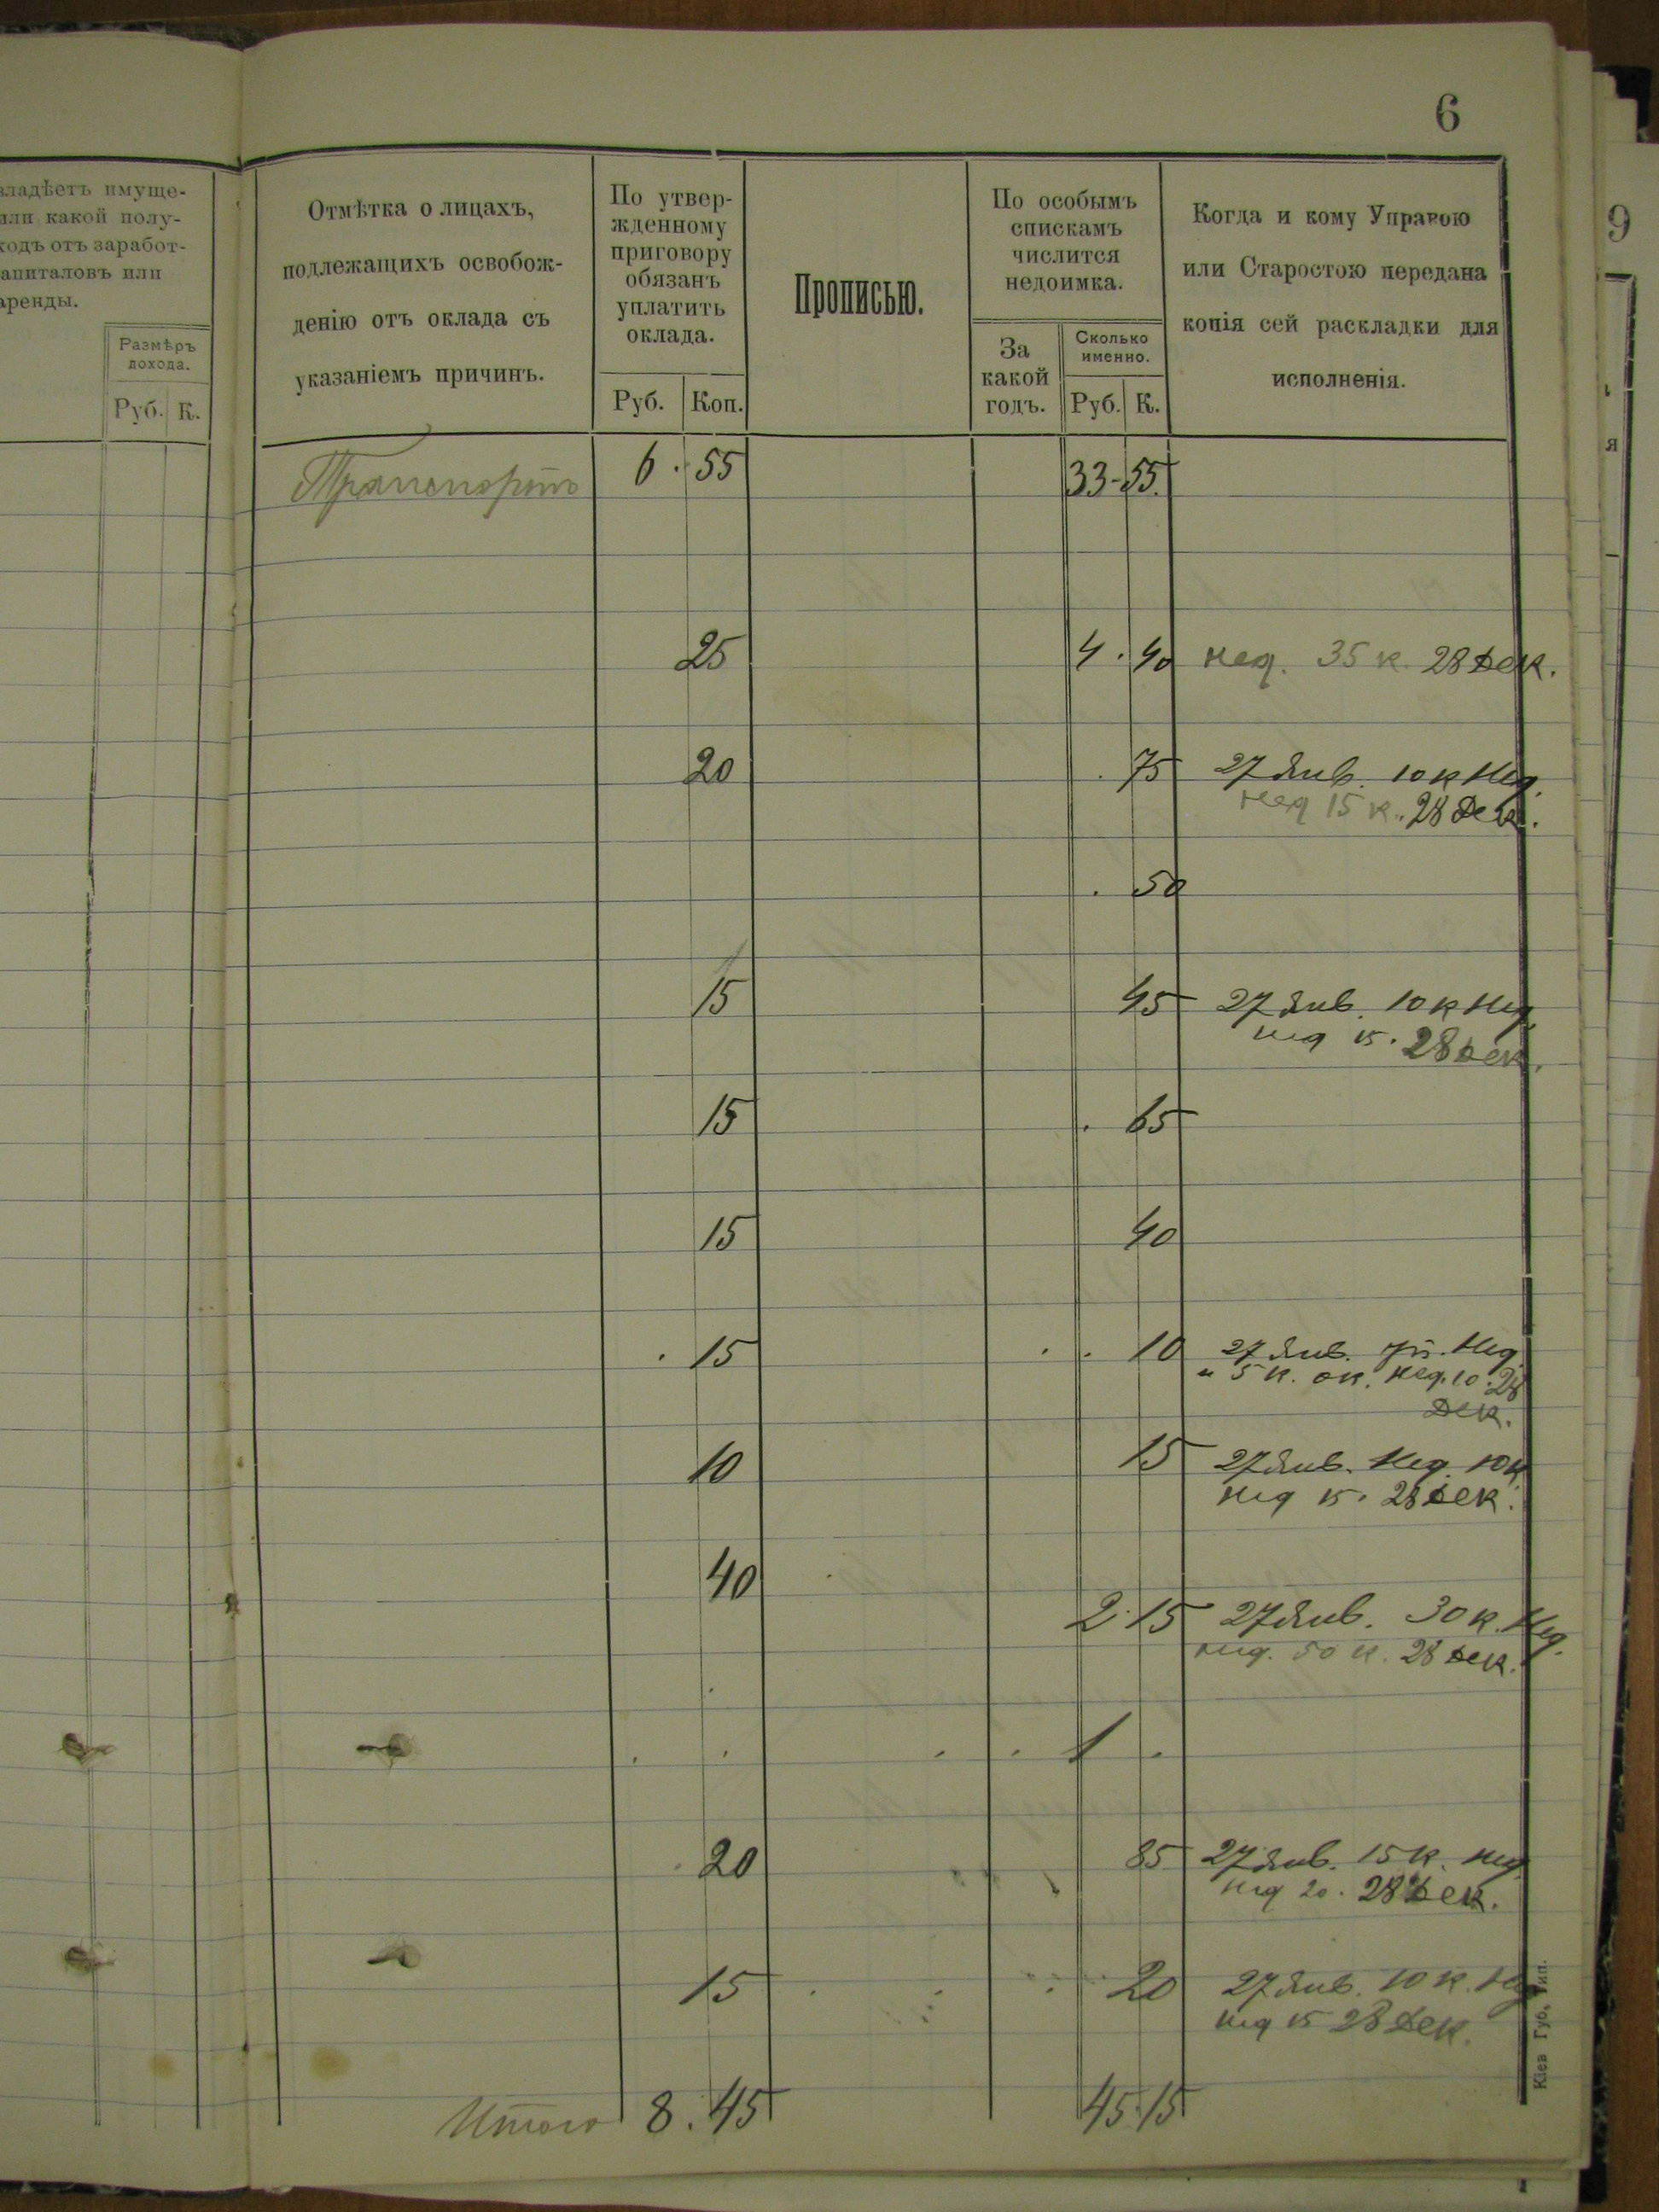 6
владѣетъ имуще-
или какой полу-
ходъ отъ заработ-
апиталовъ или
аренды.
Размѣръ
дохода.
Руб. К.
Отмѣтка о лицахъ,
подлежащихъ освобож-
денію отъ оклада съ
указаніемъ причинъ.
По утвер-
жденному
приговору
обязанъ
уплатить
оклада.
Руб. Коп.
Прописью.
По особымъ
спискамъ
числится
недоимка.
За
какой
годъ.
Сколько
именно.
Руб. К.
Когда и кому Управою
или Старостою передана
копія сей раскладки для
исполненія.
9
Транспортъ 6 . 55 33-55.
25 4 . 40 нед. 35 к. 28 Дек.
20 . 75 27 Янв. 10 к Нед.
нед 15 к. 28 Дек.
. 50
15 45 27 Янв. 10 к Нед.
нед 15. 28 Дек.
15 . 65
15 40
. 15 . . 10 27 Янв. Нед.
и 5 к. ок. нед. 10. 28
Дек.
10 15 27 Янв. Нед. 10 к
нед 15. 28 Дек.
40
2.15 27 Янв. 30 к. Нед.
нед. 50 к. 28 Дек.
. . . . 1 .
. 20 85 27 Янв. 15 к. нед
нед 20. 28 Дек.
15 20 27 Янв. 10 к. Нед
нед 15 28 Дек.
Итого 8.45 45.15
Кіев Губ. Тип.